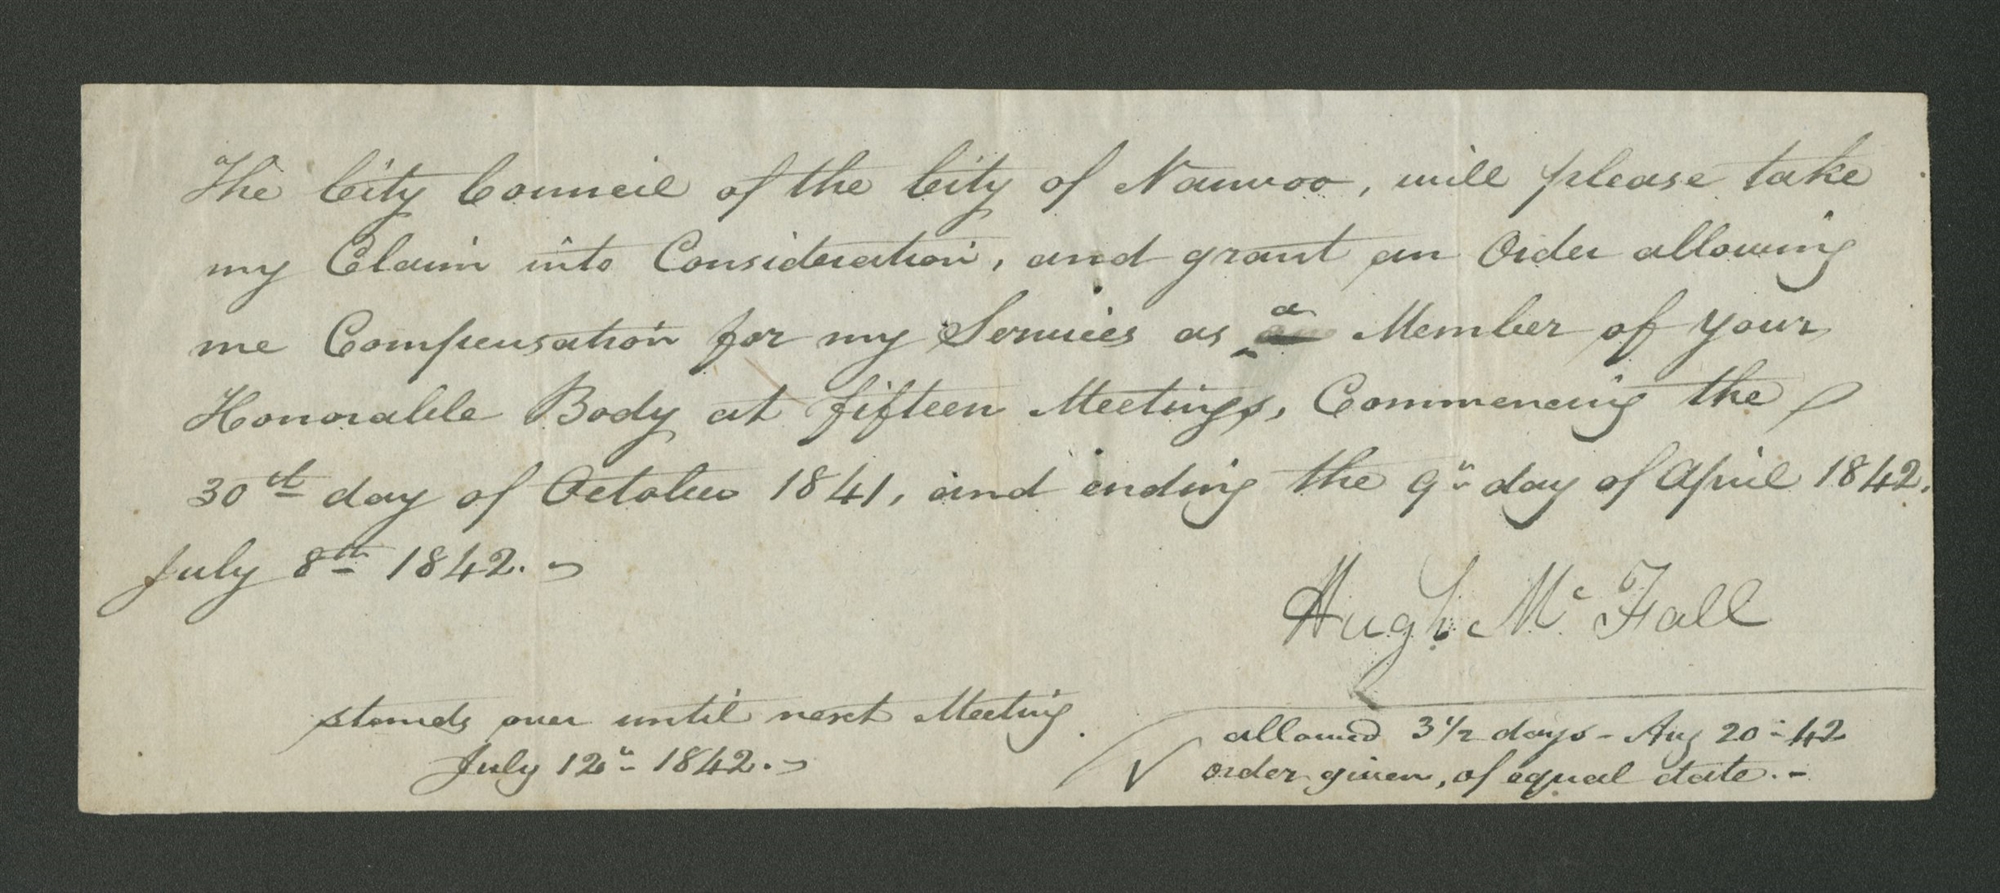 The City Council of the City of Nauvoo, will please take
my Claim into Consideration, and grant an Order allowing
me Compensation for my Services as a Member of your
Honorable Body at fifteen Meetings, Commencing the
30th day of October 1841, and ending the 9th day of April 1842.
July 8th 1842.
Hugh McFall
stands over until next Meeting.
July 12th 1842.
allowed 3 1/2 days - Aug 20 - 42
order given, of equal date. -